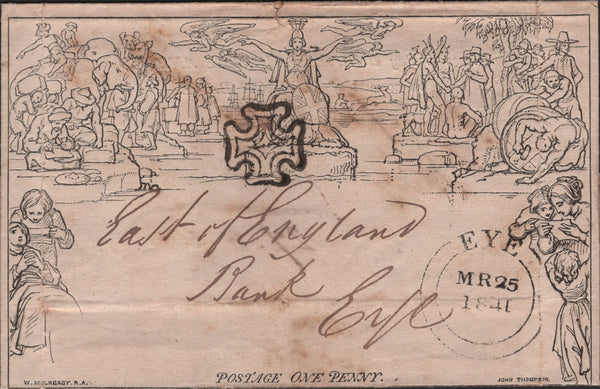 East of England
Bank Eye
EYE
MR25
1841
POSTAGE ONE PENNY.
W. MULREADY. R.A.
JOHN THOMPSON.